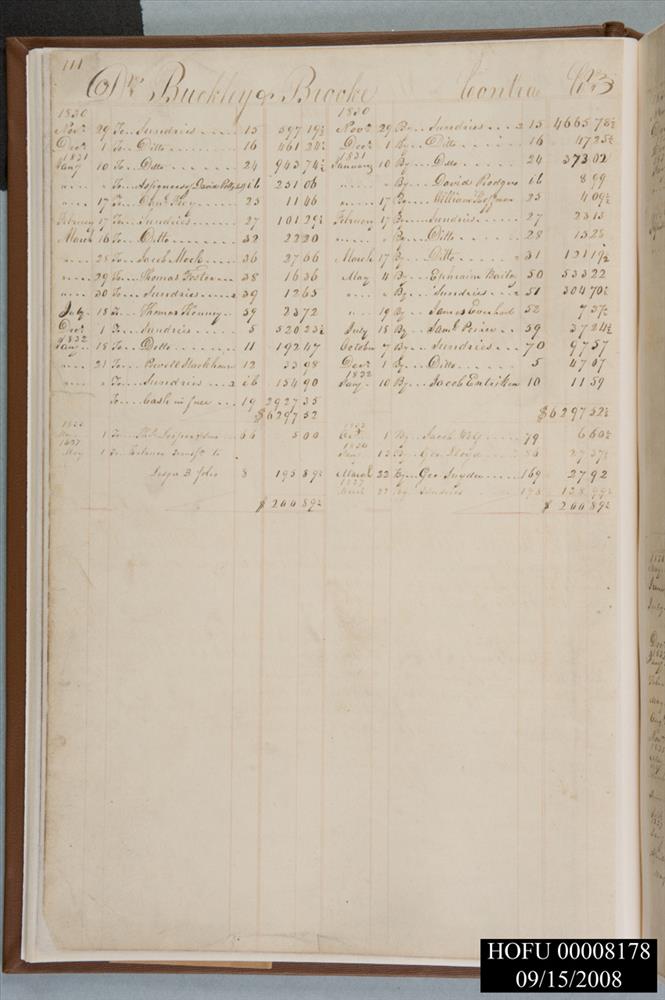 111
Dr. Buckley & Brooke Contra Cr.
1830
Novr. 29 To Sundries 15 597 19½
Decr. 1 To Ditto 16 461 24½
1831
Jany 10 To Ditto 24 943 74½
" " To Assignees of David 16 251 06
" 17 To Danl. Key 25 11 46
February 17 To Sundries 27 101 29½
March 16 To Ditto 32 22 20
" 28 To Jacob Mock 36 27 66
" 29 To Thomas Foster 38 16 36
" 30 To Sundries 39 12 65
July 18 To Thomas Kenney 59 23 72
Decr. 1 To Sundries 5 520 23½
1832
Jany 18 To Ditto 11 192 47
" 21 To Powell Stackhouse 12 33 98
" " To Sundries 154 90
To Cash in full 19 2927 35
$6297 52
1837
May 1 To Balance Transfd. to
Ledger B folio 8 195 89½
$ 200 89½
1830
Novr. 29 By Sundries 15 4665 78½
Decr. 1 By Ditto 16 47 25½
1831
January 10 By Ditto 24 373 02
" " By David Rodgers 16 8 99
" 17 By William Hoffman 25 4 09½
February 17 By Sundries 27 23 13
" " By Ditto 28 15 25
March 17 By Ditto 31 121 19½
May 4 By Ephraim Baily 50 533 22
" " By Sundries 51 304 70½
" 19 By James Everhart 52 7 37½
July 18 By Saml. 59 37 24½
October 7 By Sundries 70 97 57
Decr. 1 By Ditto 5 47 07
1832
Jany 10 By Jacob Entriken 10 11 59
$6297 52½
1 By Jacob 79 6 60½
13 By Geo. Lloyd 86 27 37½
March 22 By Geo Snyder 169 27 92
1837
March 22 By Sundries 138 99½
$ 200 89½
HOFU 00008178
09/15/2008